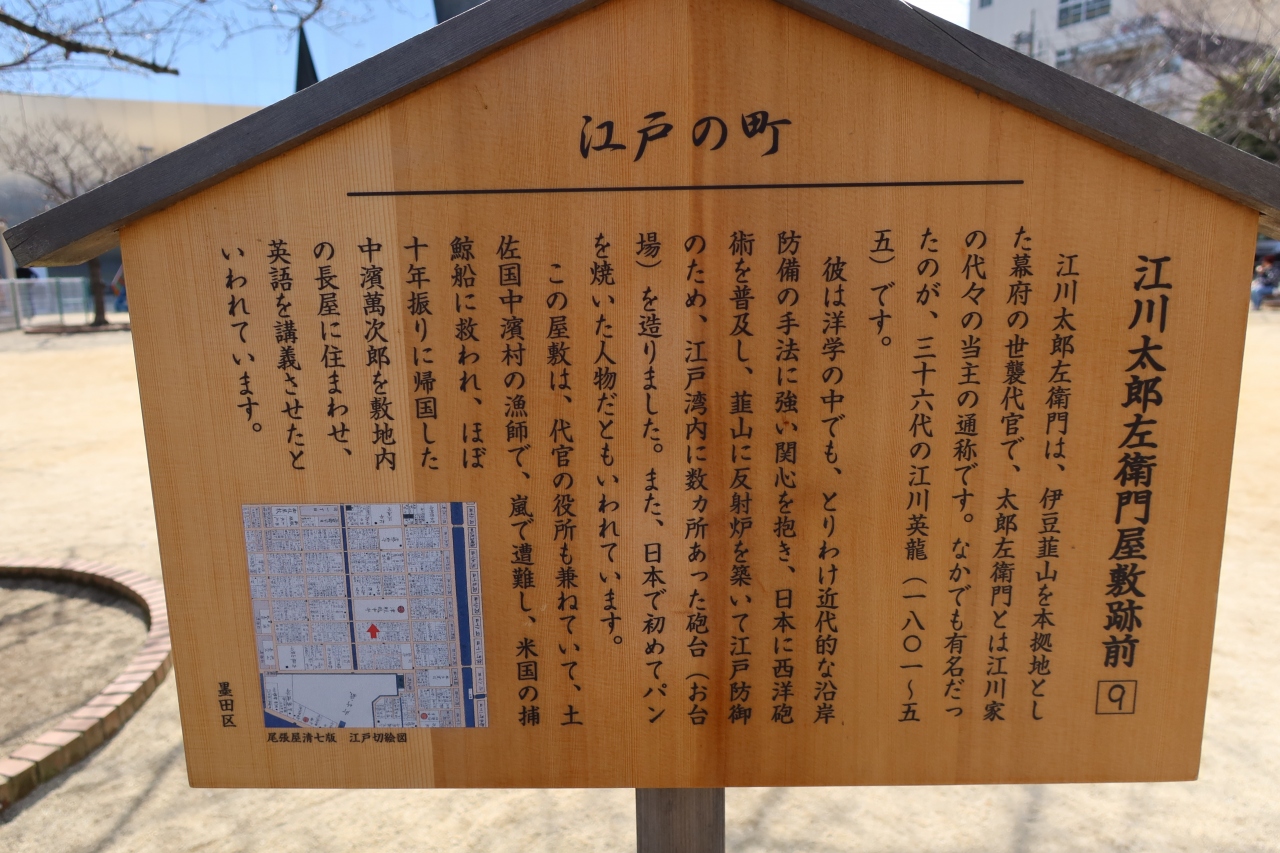 江戸の町
江川太郎左衛門屋敷跡前 9
江川太郎左衛門は、伊豆韮山を本拠地とし
た幕府の世襲代官で、太郎左衛門とは江川家
の代々の当主の通称です。なかでも有名だっ
たのが、三十六代の江川英龍（一八〇一～五
五）です。
彼は洋学の中でも、とりわけ近代的な沿岸
防備の手法に強い関心を抱き、日本に西洋砲
術を普及し、韮山に反射炉を築いて江戸防御
のため、江戸湾内に数ヵ所あった砲台（お台
場）を造りました。また、日本で初めてパン
を焼いた人物だともいわれています。
この屋敷は、代官の役所も兼ねていて、土
佐国中濱村の漁師で、嵐で遭難し、米国の捕
鯨船に救われ、ほぼ
十年振りに帰国した
中濱萬次郎を敷地内
の長屋に住まわせ、
英語を講義させたと
いわれています。
尾張屋清七版 江戸切絵図
墨田区